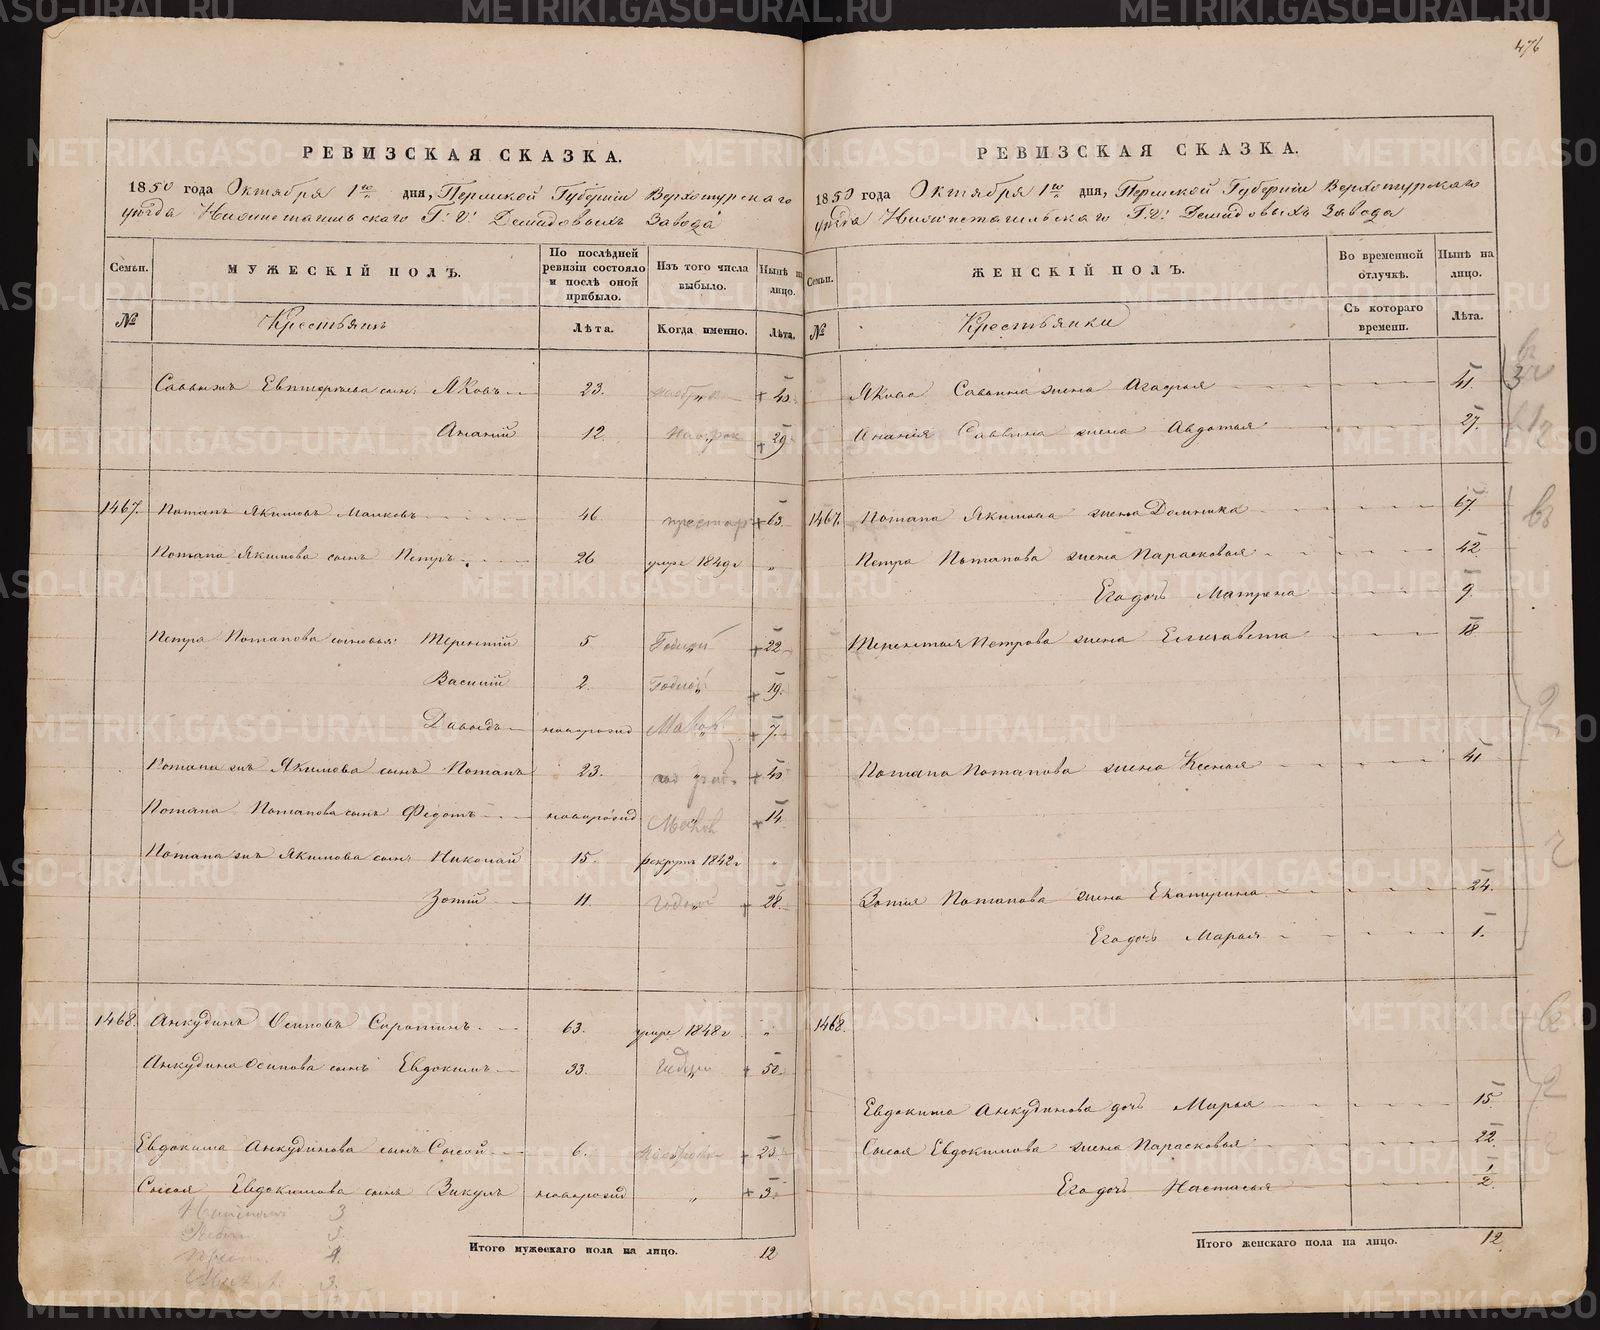 476
РЕВИЗСКАЯ СКАЗКА.
1850 года Октября 1го дня, Пермской Губернiи Верхотурскаго
уѣзда Нижнетагильскаго Г.г. Демидовыхъ Завода
Семьи.
МУЖЕСКIЙ ПОЛЪ.
По послѣдней ревизiи состояло и послѣ оной прибыло.
Изъ того числа выбыло.
Нынѣ на лицо.
№
Крестьянъ
Лѣта.
Когда именно.
Лѣта.
Саввы Сынъ Яковъ 23. + 40.
Ананiй 12. + 29
1467. Потапъ Якимовъ 46. престар + 63.
Потапа Якимова сынъ Петръ 26 умре 1849 г „
Петра Потапова сыновья: Терентiй 5. Годной + 22
Василiй 2. Годной + 19.
Давыдъ новорожд + 7.
Потапа жъ Якимова сынъ Потапъ 23. + 40
Потапа Потапова сынъ Федотъ новорожд + 14.
Потапа жъ Якимова сынъ Николай 15. рекрутъ 1842 г „
Зотiй 11. годной + 28.
1468. Анкудинъ Осиповъ Сиротинъ 63. умре 1848 г „
Анкудина Осипова сынъ Евдокимъ 33. + 50.
Евдокима Анкудинова сынъ Сысой 6. + 23.
Сысоя Евдокимова сынъ Викулъ новорожд „ + 3.
3
5.
4.
3.
Итого мужескаго пола на лицо. 12
РЕВИЗСКАЯ СКАЗКА.
1850 года Октября 1го дня, Пермской Губернiи Верхотурскаго
уѣзда Нижнетагильскаго Г.г. Демидовыхъ Завода
Семьи.
ЖЕНСКIЙ ПОЛЪ.
Во временной отлучкѣ.
Нынѣ на лицо.
№
Крестьянки
Съ котораго времени.
Лѣта.
Якова Саввина жена Агафья 41.
Ананiя Саввина жена Авдотья 27.
1467. Потапа Якимова жена Домника 67.
Петра Потапова жена Парасковья 42.
Его дочь Матрена 9.
Терентья Петрова жена Елизавета 18
Потапа Потапова жена Ксенья 41
Зотiя Потапова жена Екатерина 24.
Его дочь Марья 1.
1468.
Евдокима Анкудинова дочь Марья 15
Сысоя Евдокимова жена Парасковья 22.
Его дочь Настасья 1/2.
Итого женскаго пола на лицо. 12.
METRIKI.GASO-URAL.RU